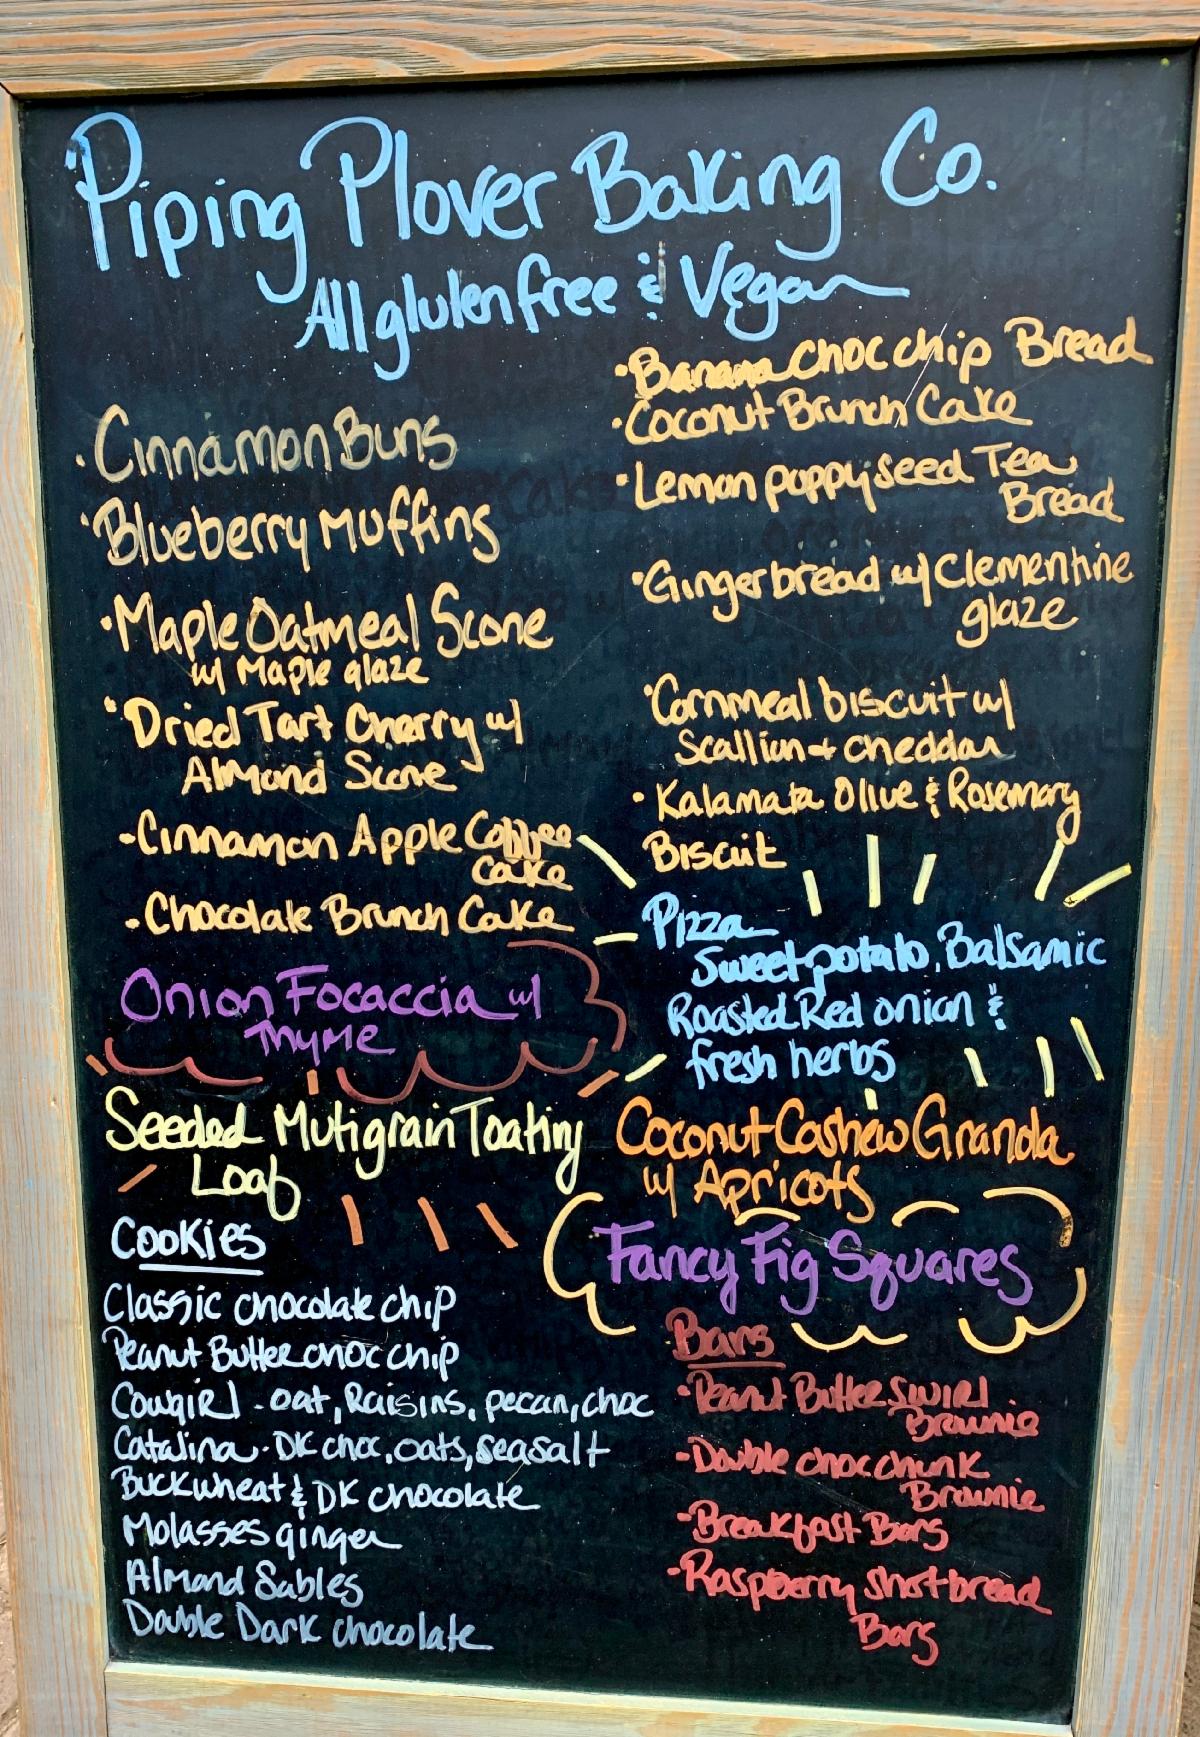 Piping Plover Baking Co.
All gluten free & Vegan
· Cinnamon Buns
· Blueberry Muffins
· Maple Oatmeal Scone
w/ Maple glaze
· Dried Tart Cherry w/
Almond Scone
· Cinnamon Apple Coffee
Cake
· Chocolate Brunch Cake
Onion Focaccia w/
Thyme
Seeded Mutigrain Toating
Loaf
Cookies
Classic chocolate chip
Peanut Butter choc chip
Cowgirl - oat, Raisins, pecan, choc
Catalina - DK choc, oats, seasalt
Buckwheat & DK chocolate
Molasses ginger
Almond Sables
Double Dark chocolate
· Banana choc chip Bread
· Coconut Brunch Cake
· Lemon poppyseed Tea
Bread
· Gingerbread w/ Clementine
glaze
· Cornmeal biscuit w/
Scallion + cheddar
· Kalamata Olive & Rosemary
Biscuit
Pizza
Sweet potato, Balsamic
Roasted Red onion &
fresh herbs
Coconut Cashew Granola
w/ Apricots
Fancy Fig Squares
Bars
· Peanut Butter Swirl
Brownie
· Double choc chunk
Brownie
· Breakfast Bars
· Raspberry shotbread
Bars